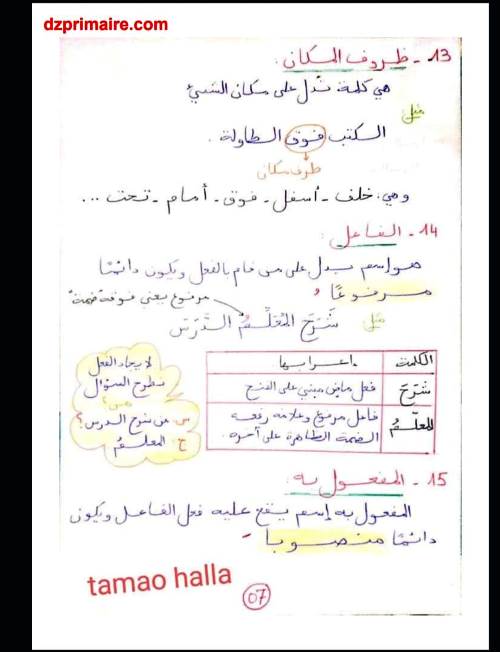 dzprimaire.com
13 - ظروف المكان :
هي كلمة تدل على مكان الشيئ
مثل
الكتب فوق الطاولة .
ظرف مكان
وهي: خلف - أسفل - فوق - أمام - تحت ...
14 - الفاعل :
هو إسم يدل على من قام بالفعل ويكون دائمًا
مرفوعًا
مرفوع يعني فوقه ضمة
مثل شَرَحَ المُعَلِّمُ الدَّرسَ
الكلمة إعرابها
شَرَحَ فعل ماض مبني على الفتح
المعلّمُ فاعل مرفوع وعلامة رفعه
الضمة الظاهرة على آخره.
لايجاد الفعل
نطرح السؤال
من؟
س: من شرح الدرس؟
ج: المعلمُ
15 - المفعول به :
المفعول به إسم يقع عليه فعل الفاعل ويكون
دائمًا منصوبا
tamao halla
07